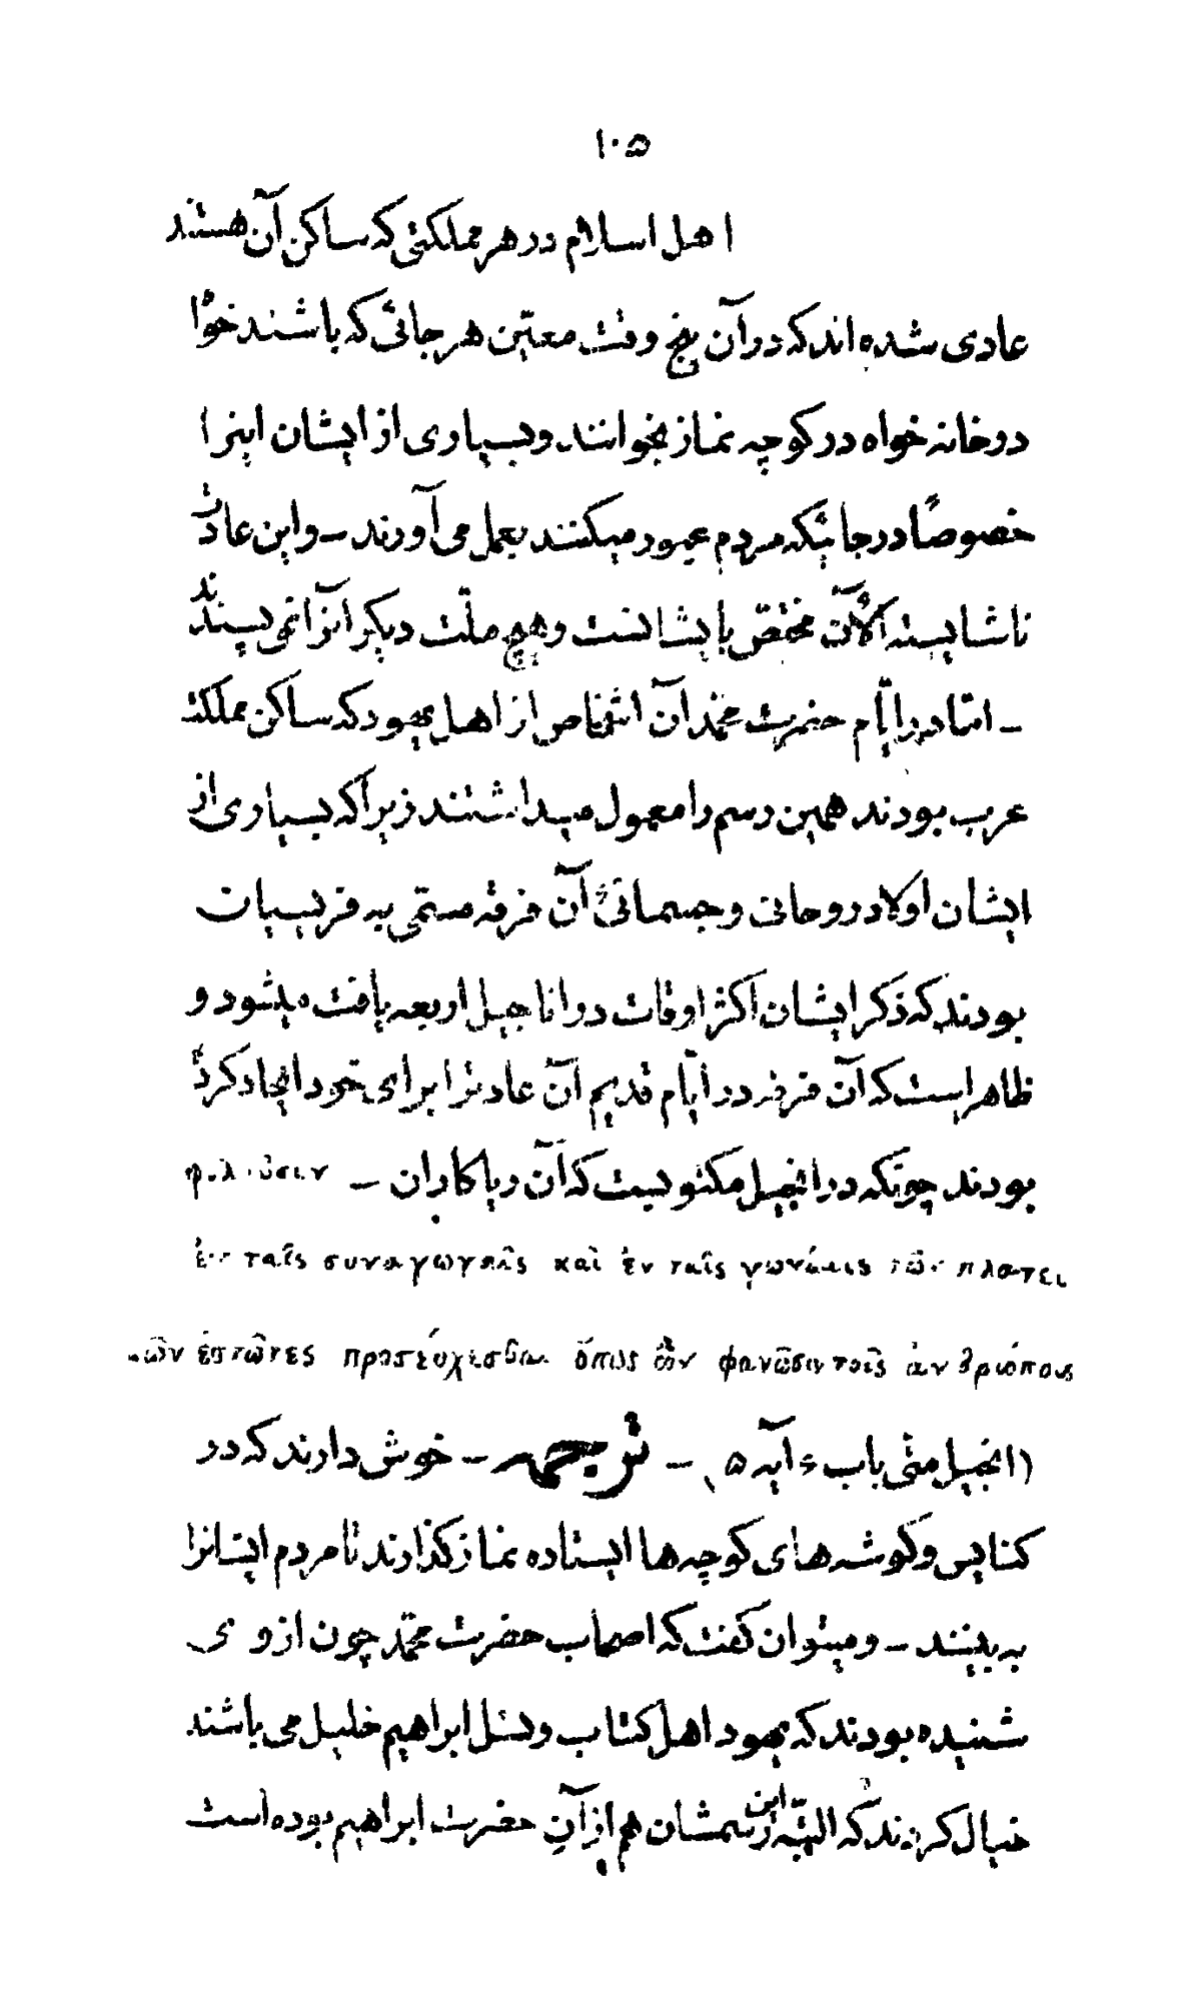 ۱۰۵
اهل اسلام در هر مملکتی که ساکن آن هستند
عادی شده اند که در آن پنج وقت معیّن هر جائی که باشند خواه
در خانه خواه در کوچه نماز بخوانند و بسیاری از ایشان اینرا
خصوصًا در جائیکه مردم عبور میکنند بعمل می آورند – و این عادت
ناشایسته الآن مختصّ بایشانست و هیچ ملّت دیگر آنرا نمی پسندند
– امّا در ایّام حضرت محمّد آن اشخاص از اهل یهود که ساکن مملکت
عرب بودند همین رسم را معمول میداشتند زیرا که بسیاری از
ایشان اولاد روحانی و جسمانیٔ آن فرقه مسمّی به فریسیان
بودند که ذکر ایشان اکثر اوقات در اناجیل اربعه یافت میشود و
ظاهر است که آن فرقه در ایّام قدیم آن عادترا برای خود ایجاد کرده
بودند چونکه در انجیل مکتوبست که آن ریاکاران – φιλοῦσιν
ἐν ταῖς συναγωγαῖς καὶ ἐν ταῖς γωνίαις τῶν πλατει
ῶν ἑστῶτες προσεύχεσθαι ὅπως ἂν φανῶσιν τοῖς ἀνθρώποις
(انجیل متّی باب ۶ آیه ۵) – ترجمه – خوش دارند که در
کنایس و گوشه های کوچه ها ایستاده نماز گذارند تا مردم ایشانرا
به بینند – و میتوان گفت که اصحاب حضرت محمّد چون از وی
شنیده بودند که یهود اهل کتاب و نسل ابراهیم خلیل می باشند
خیال کردند که البتّه این رسمشان هم از آنِ حضرت ابراهیم بوده است